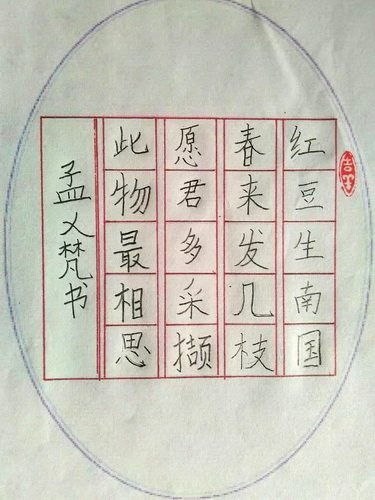 红豆生南国
春来发几枝
愿君多采撷
此物最相思
孟乂梵书